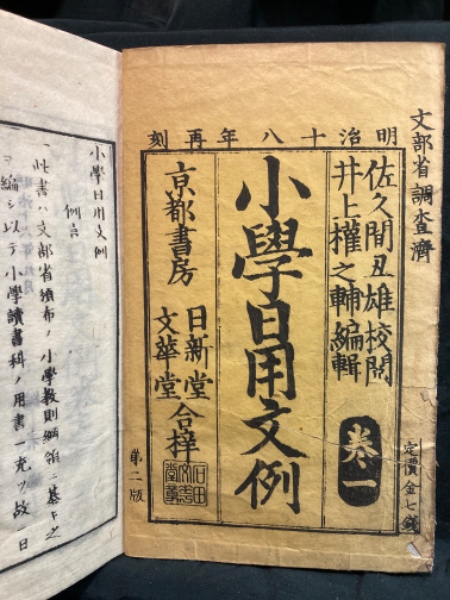 文部省調査濟
定價金七錢
明治十八年再刻
佐久間丑雄校閲
井上權之輔編輯
卷一
小學日用文例
京都書房
日新堂
文華堂
合梓
第二版
小學日用文例
例言
一此書ハ文部省頒布ノ小學教則綱領ニ基キ之
ヲ編シ以テ小學讀書科ノ用書ニ充ツ故